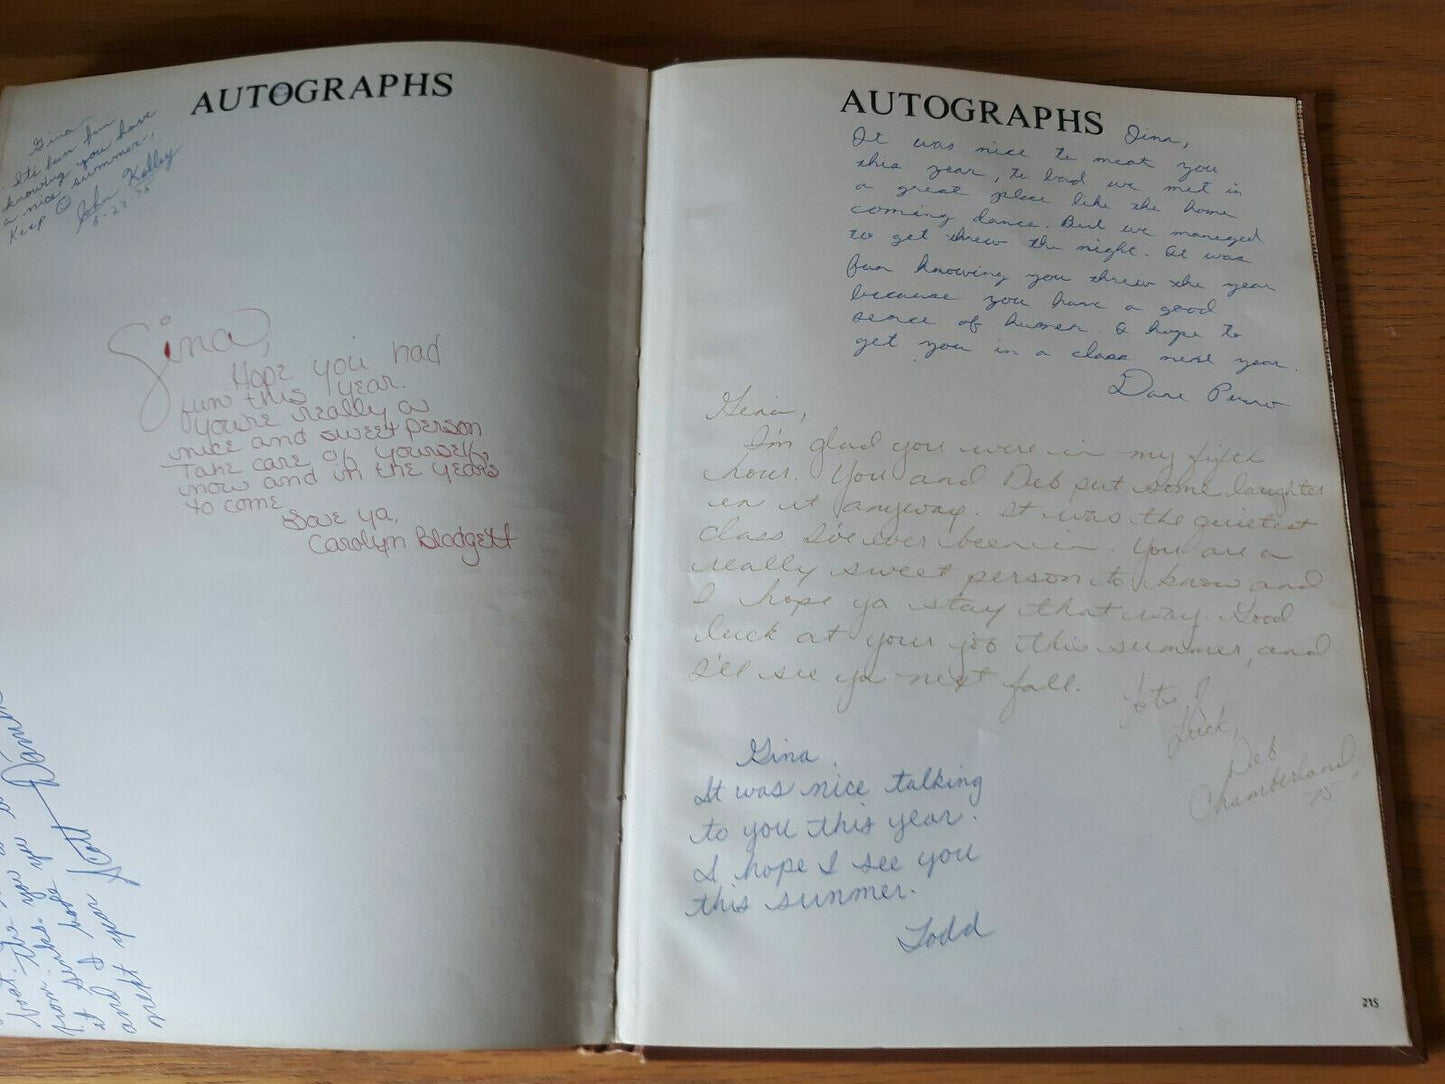 AUTOGRAPHS
Gina -
Its ben fun
knowing you have
a nice summer,
Keep
John Kelley
Gina,
Hope you had
fun this year.
You're really a
nice and sweet person
Take care of yourself,
now and in the years
to come.
Love ya,
Carolyn Blodgett
you so
it sinks you
and I hope
next year Scott
AUTOGRAPHS
Gina,
It was nice to meat you
this year, to bad we met in
a great place like the home
coming dance. But we managed
to get threw the night. It was
fun knowing you threw the year
because you have a good
sence of humer. I hope to
get you in a class next year.
Dave
Gina,
I'm glad you were in my fifth
hour. You and Deb put some laughter
in it anyway. It was the quietest
class I've ever been in. You are a
really sweet person to know and
I hope ya stay that way. Good
luck at your job this summer, and
I'll see ya next fall.
Lots of
Luck,
Deb
Chamberland,
75
Gina.
It was nice talking
to you this year.
I hope I see you
this summer.
Todd
215